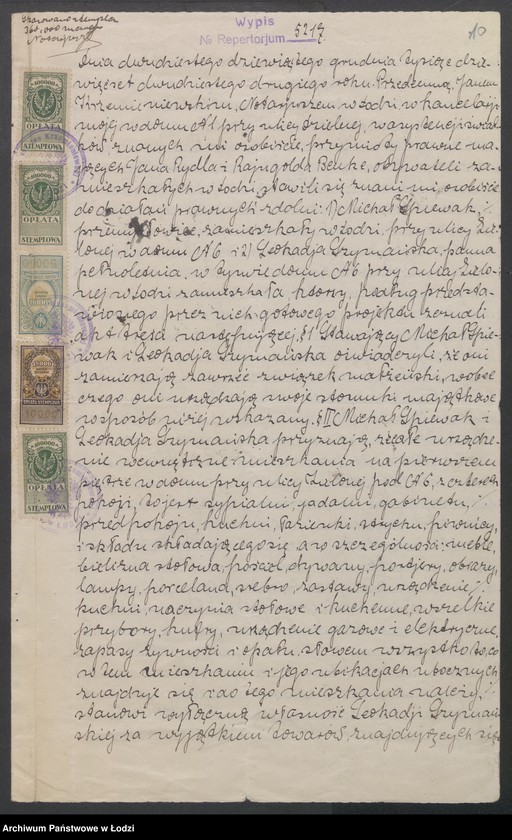 Skasowano stemple
360.000 marek
Notarjusz
Wypis
№ Repertorjum 5217.
10
Dnia dwudziestego dziewiątego grudnia tysiąc dzie-
więćset dwudziestego drugiego roku. Przedemną, Janem
Krzemieniewskim, Notarjuszem w Łodzi, w kancelarji
mojej w domu № 1 przy ulicy Dzielnej, w asystencji świad-
ków znanych mi osobiście, przymioty prawne ma-
jących Jana Rydla i Rajngolda Benke, obywateli za-
mieszkałych w Łodzi, stawili się znani mi osobiście
do działań prawnych zdolni: 1) Michał Śpiewak,
zamieszkały w Łodzi, przy ulicy Zie-
lonej w domu № 6 i 2) Leokadja Szymańska, panna
pełnoletnia, w tymże domu № 6 przy ulicy Zielo-
nej w Łodzi zamieszkała, którzy, podług przedsta-
wionego przez nich gotowego projektu zeznali
akt treści następującej: § I Stawający Michał Śpie-
wak i Leokadja Szymańska oświadczyli, że oni
zamierzają zawrzeć związek małżeński, wobec
czego oni urządzają swoje stosunki majątkowe
w sposób niżej wskazany. § II Michał Śpiewak i
Leokadja Szymańska przyznają, że całe urządze-
nie wewnętrzne mieszkania na pierwszem
piętrze w domu przy ulicy Zielonej pod № 6, z czterech
pokoji, to jest sypialni, jadalni, gabinetu,
przedpokoju, kuchni, łazienki, strychu, piwnicy,
i składu składającego się, a w szczególności: meble,
bielizna stołowa, pościel, dywany, portjery, obrazy,
lampy, porcelana, srebro, zastawy, urządzenie
kuchni, naczynia stołowe i kuchenne, wszelkie
przybory, kufry, urządzenie gazowe i elektryczne,
zapasy żywności i opału, słowem wszystko to, co
w tem mieszkaniu i jego ubikacjach ubocznych
znajduje się i do tego mieszkania należy,
stanowi wyłączną własność Leokadji Szymań-
skiej za wyjątkiem towarów, znajdujących się
100000
OPŁATA
STEMPLOWA
100000
OPŁATA
STEMPLOWA
50000
10000
OPŁATA STEMPLOWA
10000
100000
OPŁATA
STEMPLOWA
Archiwum Państwowe w Łodzi